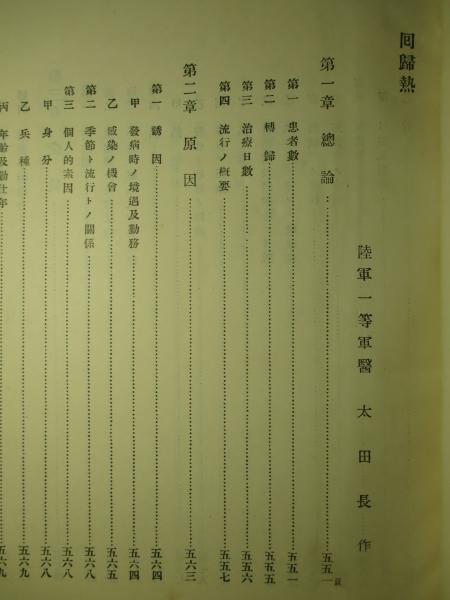 回歸熱
陸軍一等軍醫 太田長作
第一章 總論 五五一頁
第一 患者數 五五一
第二 轉歸 五五五
第三 治療日數 五五五
第四 流行ノ概要 五五七
第二章 原因 五六三
第一 誘因 五六四
甲 發病時ノ境遇及勤務 五六四
乙 感染ノ機會 五六五
第二 季節ト流行トノ關係 五六八
第三 個人的素因 五六八
甲 身分 五六八
乙 兵種 五六九
丙 年齡及勤仕年 五六九